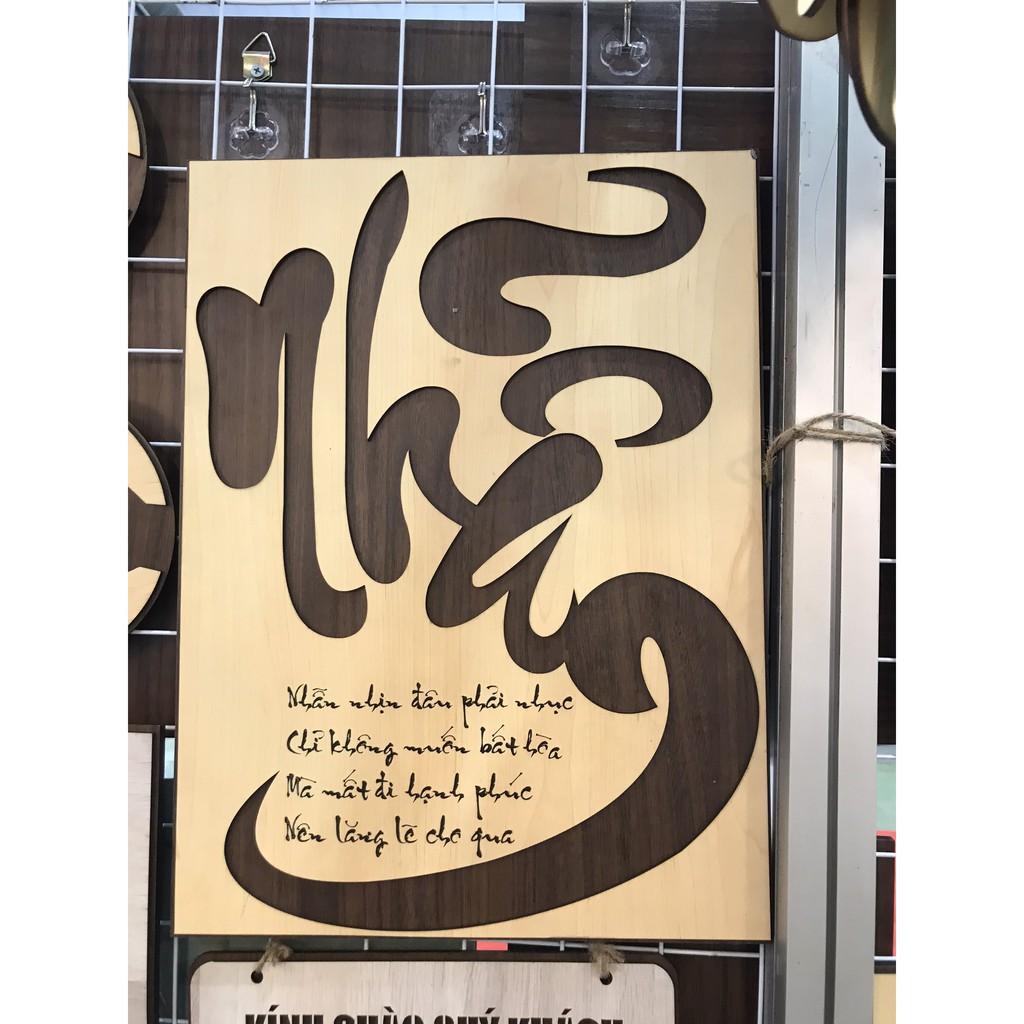 Nhẫn
Nhẫn nhịn đâu phải nhục
Chỉ không muốn bất hòa
Mà mất đi hạnh phúc
Nên lặng lẽ cho qua
KÍNH CHÀO QUÝ KHÁCH